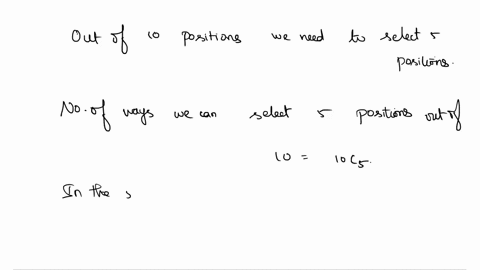 Out of 10 positions we need to select 5
positions.
No. of ways we can select 5 positions out of
10 = 10C5.
In the s